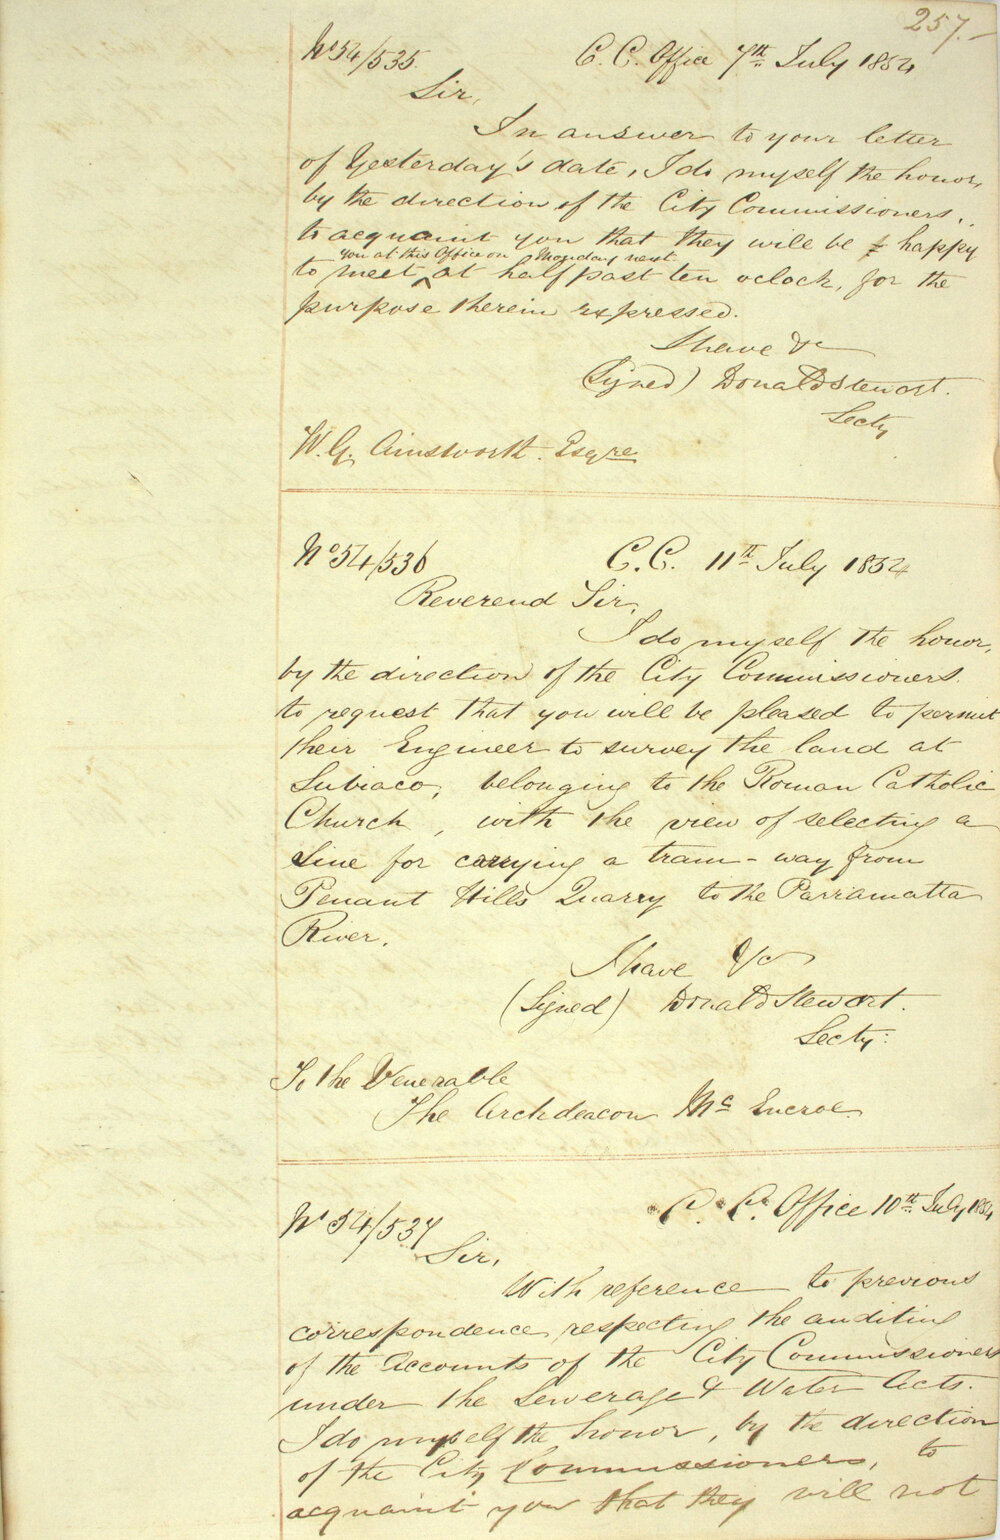 257.-
No 54/535. C. C. Office 7th July 1854
Sir,
In answer to your letter
of Yesterday's date, I do myself the honor,
by the direction of the City Commissioners,
to acquaint you that they will be happy
you at this Office on Monday next
to meet ^ at half past ten oclock, for the
purpose therein expressed.
I have &c
(Signed) Donald Stewart.
Secty
W. G. Ainsworth. Esqre
No 54/536 C. C. 11th July 1854
Reverend Sir,
I do myself the honor,
by the direction of the City Commissioners.
to request that you will be pleased to permit
their Engineer to survey the land at
Subiaco, belonging to the Roman Catholic
Church, with the view of selecting a
Line for carrying a tram-way from
Penant Hills Quarry to the Parramatta
River.
I have &c
(Signed) Donald Stewart.
Secty:
To the Venerable
The Archdeacon Mc Encroe
No 54/537 C. C. Office 10th July 1854
Sir,
With reference to previous
correspondence respecting the auditing
of the Accounts of the City Commissioners
under the Sewerage & Water Acts.
I do myself the honor, by the direction
of the City Commissioners, to
acquaint you that they will not